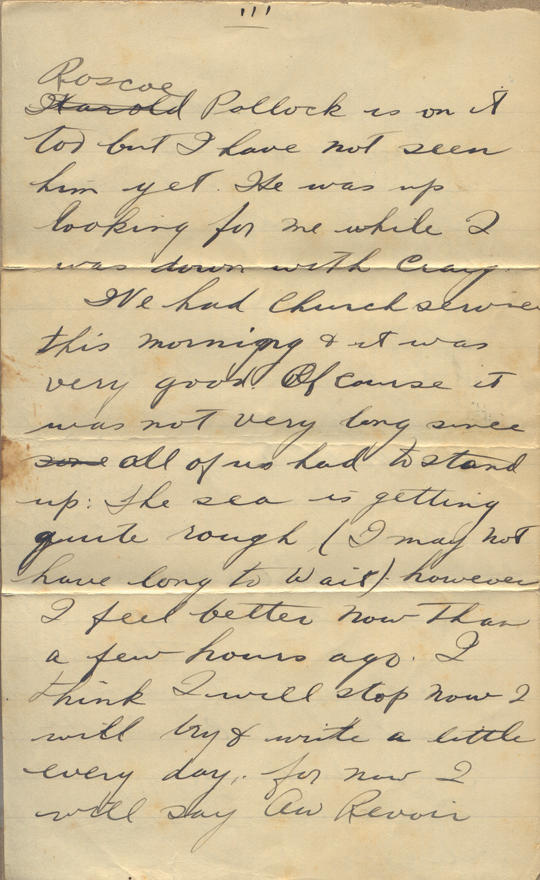 111
Roscoe
Harold Pollock is on it
too but I have not seen
him yet. He was up
looking for me while I
was down with Craig.
We had Church service
this morning & it was
very good. Of course it
was not very long since
some all of us had to stand
up: the sea is getting
quite rough (I may not
have long to wait). however
I feel better now than
a few hours ago. I
think I will stop now I
will try & write a little
every day,. for now I
will say Au Revoir